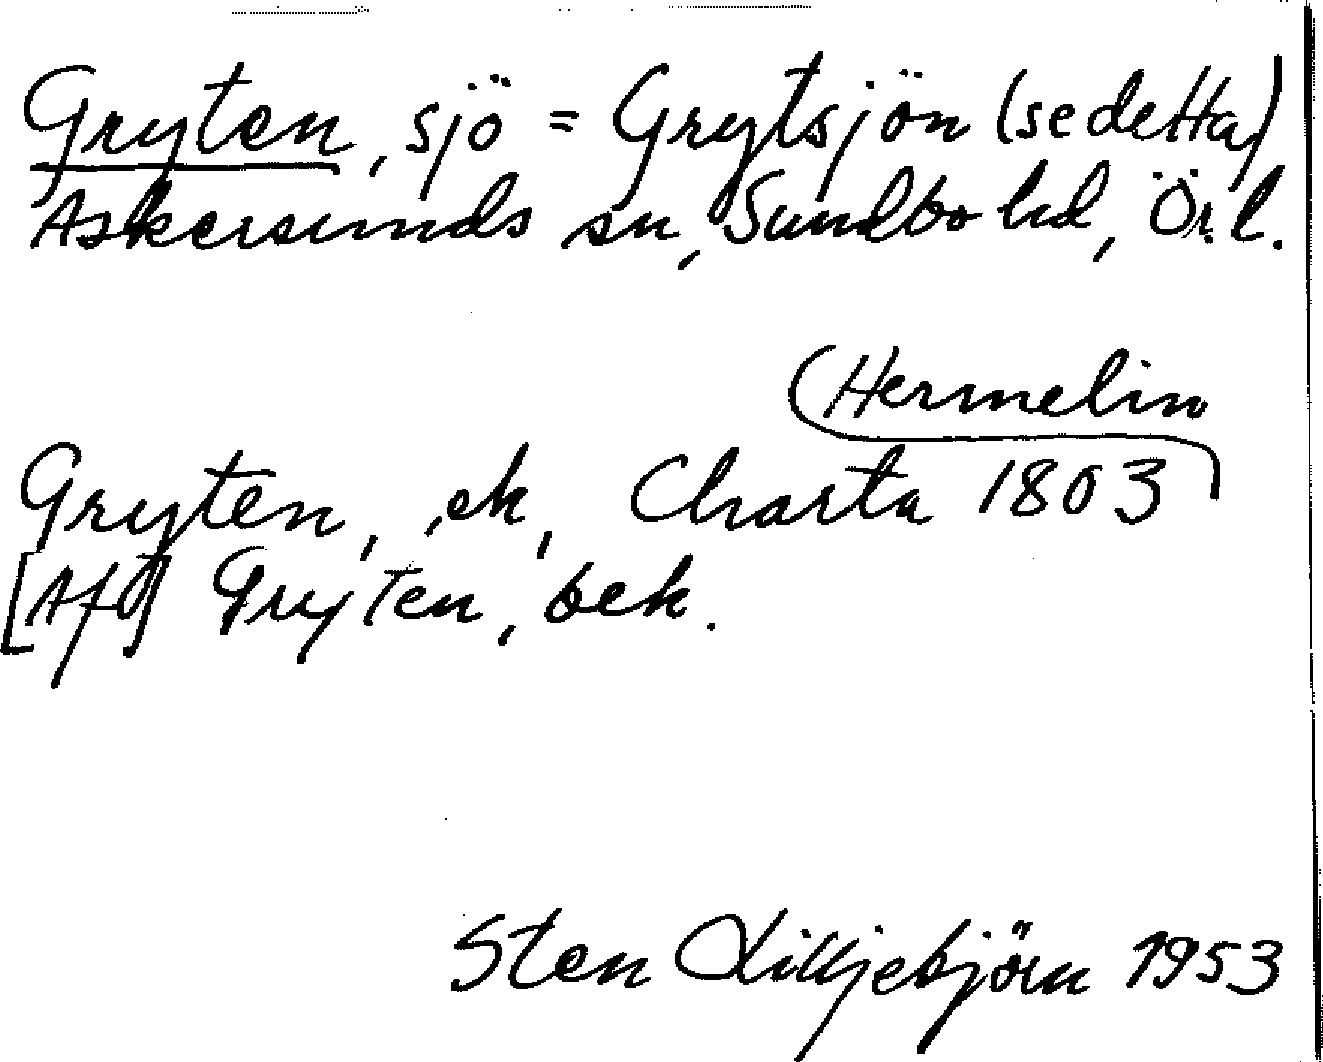 Gryten, sjö = Grytsjön (se detta)
Askersunds sn, Sundbo hd, Ör. l.
(Hermelin
Gryten, ek, Charta 1803
[Afo] Gryten, bek.
Sten Lilljebjörn 1953